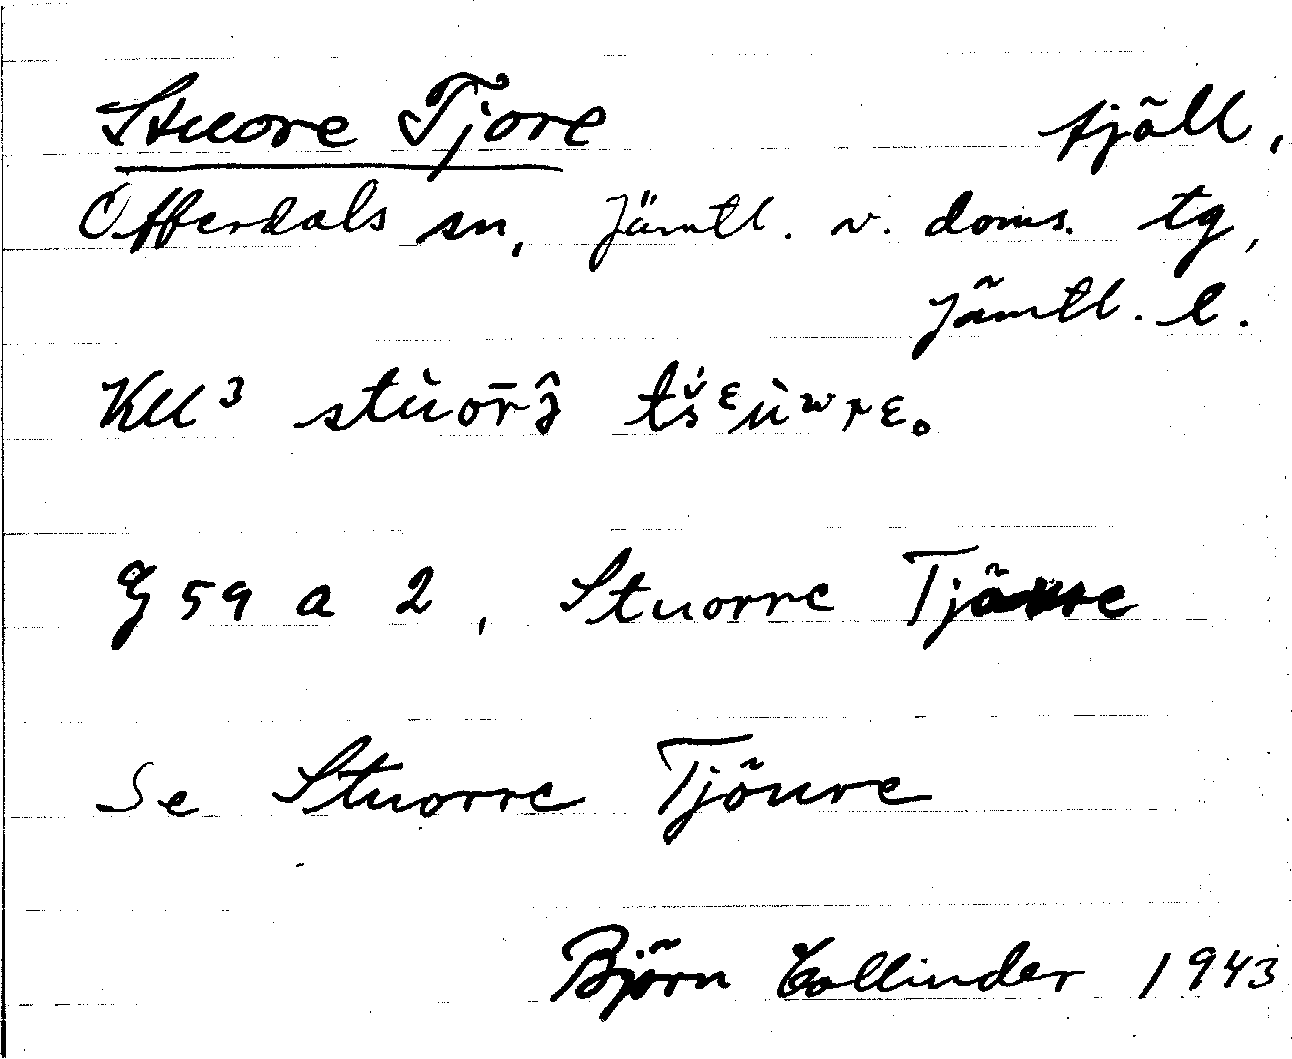 Stuore Tjore fjäll,
Offerdals sn, Jämtl. v. doms. tg,
Jämtl. l.
KU³ stùōrə̑ tš́ᵋùʷrɛ.
G 59 a 2, Stuorre
Se Stuorre Tjöure
Björn Collinder 1943